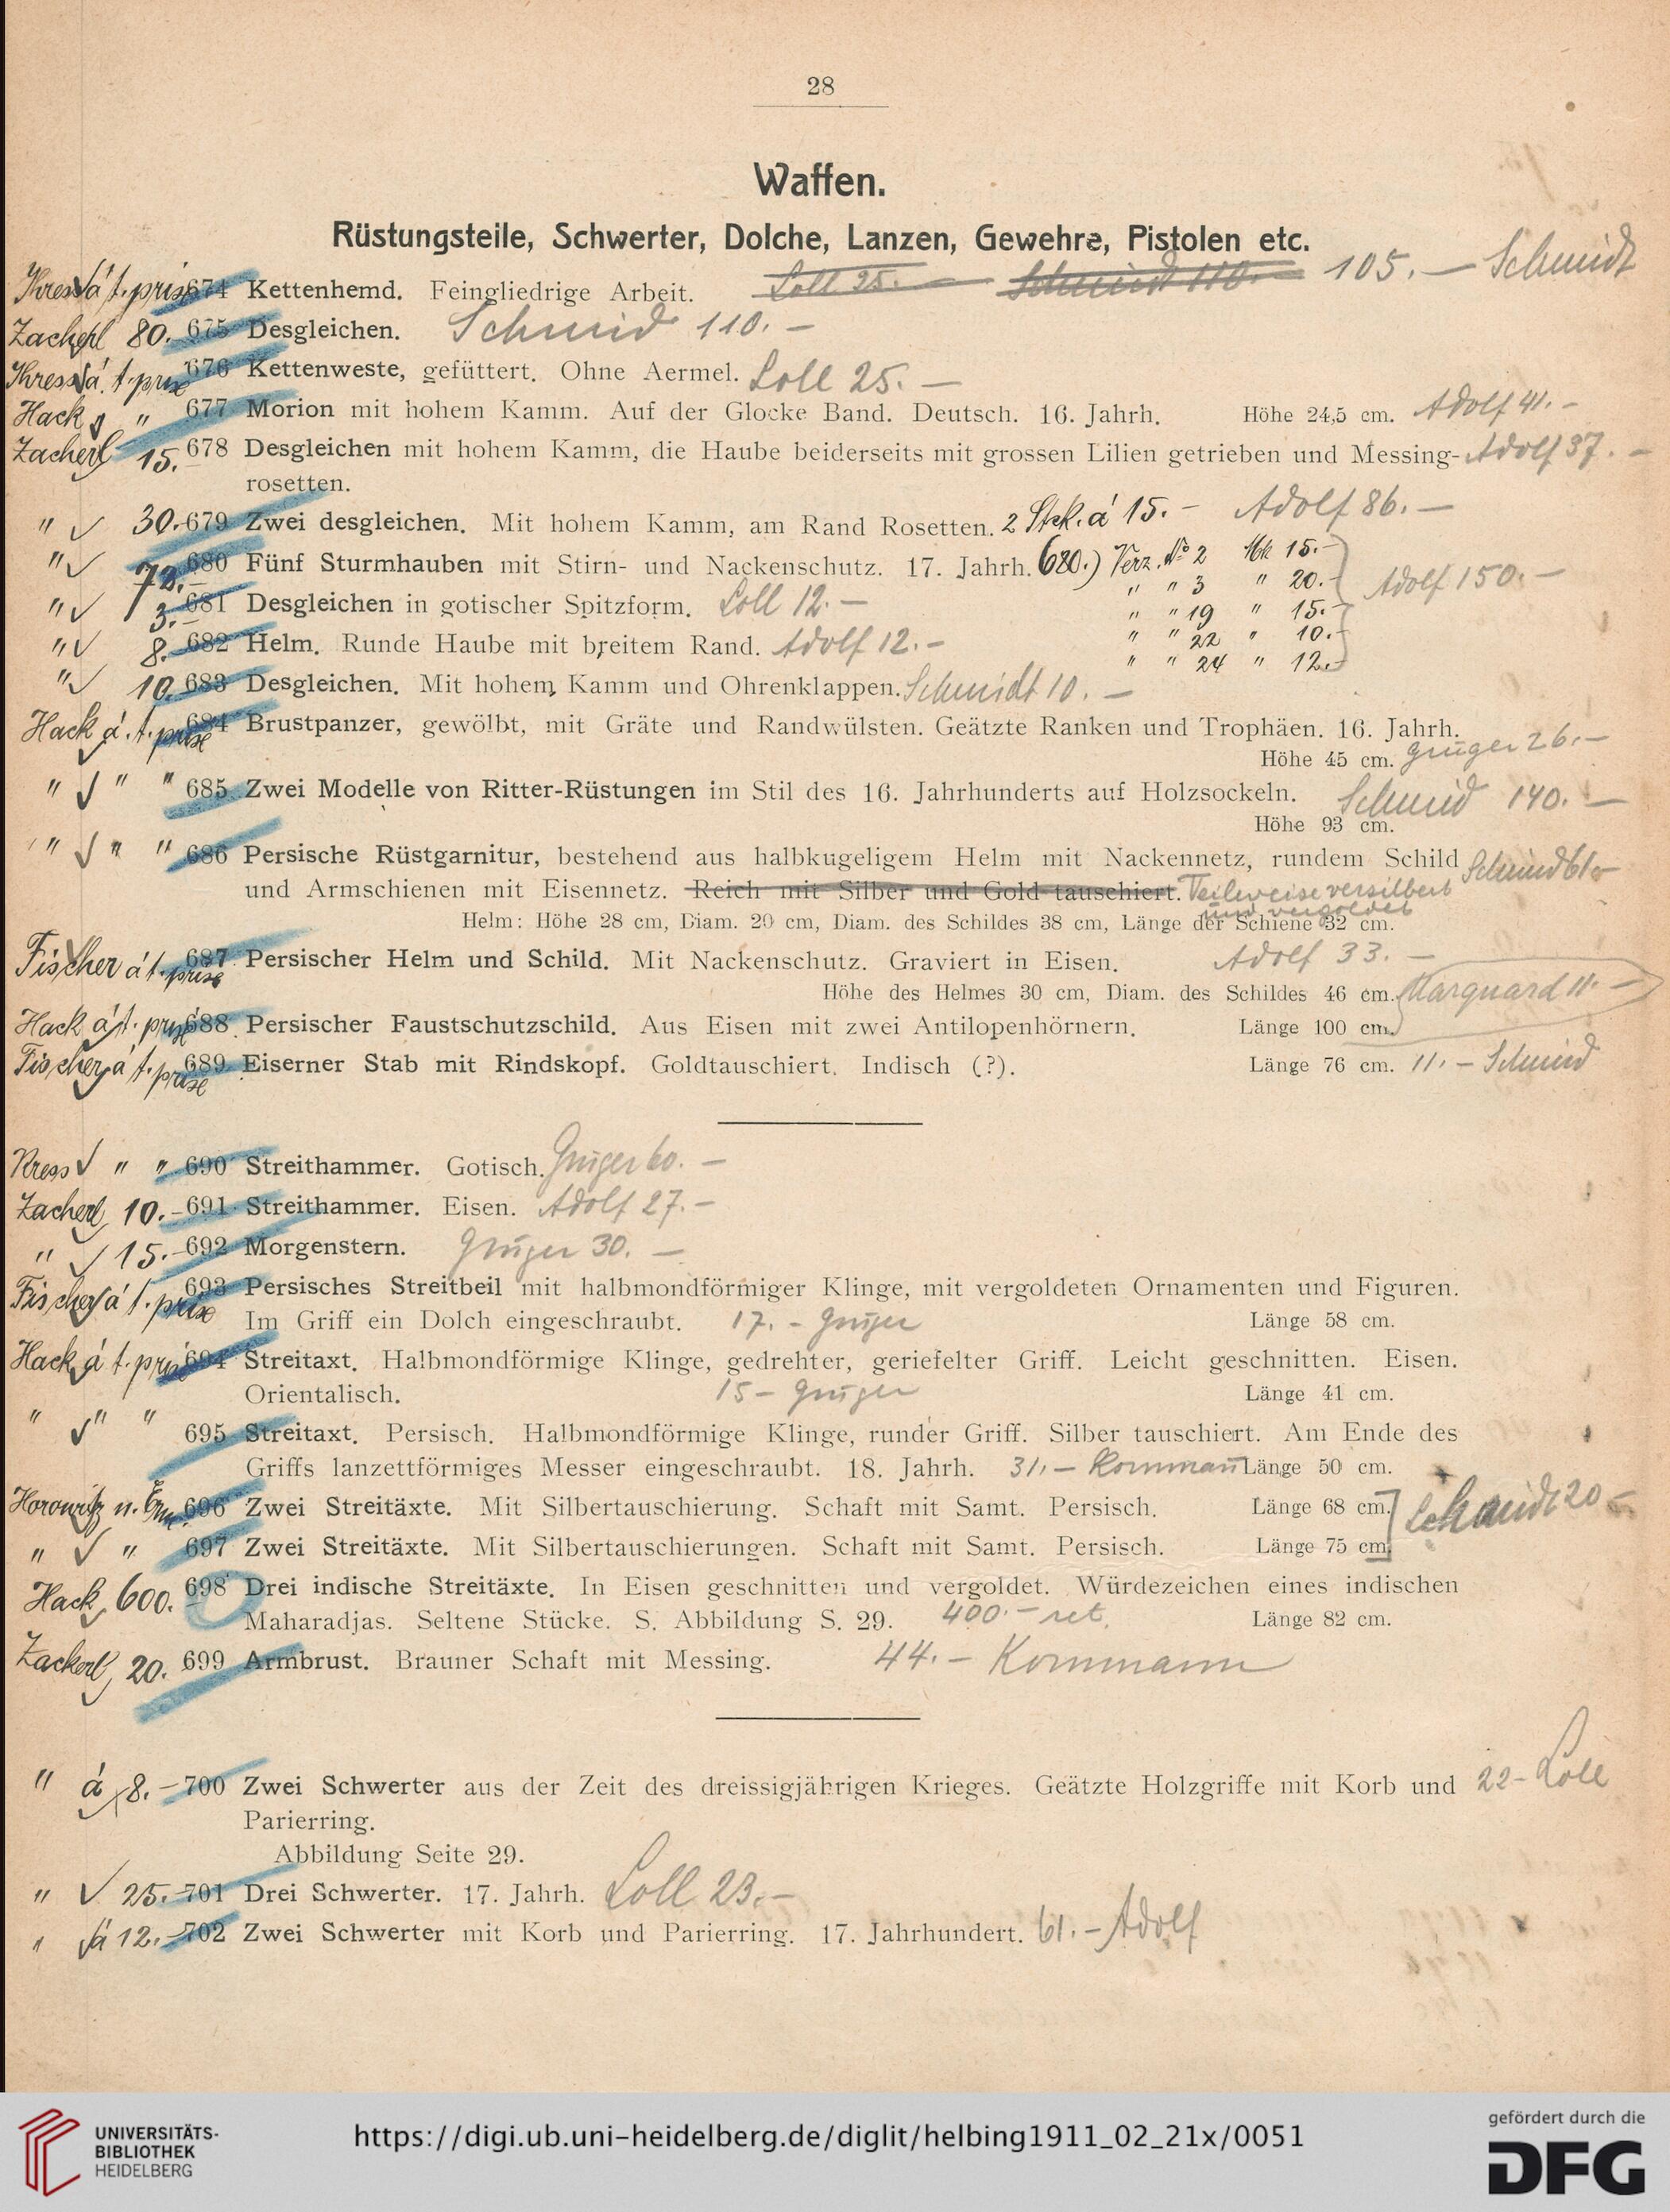 28
Waffen.
Rüstungsteile, Schwerter, Dolche, Lanzen, Gewehre, Pistolen etc.
á t. prix 674 Kettenhemd. Feingliedrige Arbeit. Loll 25.— Schmid 110.— 105.— Schmidt
Zacherl 80.- 675 Desgleichen. Schmid 110.—
á t. prix 676 Kettenweste, gefüttert. Ohne Aermel. Loll 25.—
Hack " 677 Morion mit hohem Kamm. Auf der Glocke Band. Deutsch. 16. Jahrh. Höhe 24,5 cm. Adolf 41.-
Zacherl 15.- 678 Desgleichen mit hohem Kamm, die Haube beiderseits mit grossen Lilien getrieben und Messing- Adolf 37.-
rosetten.
" 30.- 679 Zwei desgleichen. Mit hohem Kamm, am Rand Rosetten. 2 Stck. á 15.- Adolf 86.—
" 72.- 680 Fünf Sturmhauben mit Stirn- und Nackenschutz. 17. Jahrh. 680.) Verz. No 2 Mk 15.-
" " 3 " 20.- Adolf 150.—
" 3.- 681 Desgleichen in gotischer Spitzform. Loll 12.— " " 19 " 15.-
" 8.- 682 Helm. Runde Haube mit breitem Rand. Adolf 12.- " " 22 " 10.-
" " 24 " 12.-
" 10.- 683 Desgleichen. Mit hohem Kamm und Ohrenklappen. Schmidt 10.—
Hack á. t. prix 684 Brustpanzer, gewölbt, mit Gräte und Randwülsten. Geätzte Ranken und Trophäen. 16. Jahrh.
Höhe 45 cm. Grüger 26.—
" " " 685 Zwei Modelle von Ritter-Rüstungen im Stil des 16. Jahrhunderts auf Holzsockeln. Schmid 140.—
Höhe 93 cm.
" " " 686 Persische Rüstgarnitur, bestehend aus halbkugeligem Helm mit Nackennetz, rundem Schild Schmid 61.-
und Armschienen mit Eisennetz. Reich mit Silber und Gold tauschiert. Teilweise versilbert
und vergoldet
Helm: Höhe 28 cm, Diam. 20 cm, Diam. des Schildes 38 cm, Länge der Schiene 32 cm.
Fischer á t. prix 687 Persischer Helm und Schild. Mit Nackenschutz. Graviert in Eisen. Adolf 33.—
Höhe des Helmes 30 cm, Diam. des Schildes 46 cm. Marquard 11.-
Hack á t. prix 688 Persischer Faustschutzschild. Aus Eisen mit zwei Antilopenhörnern. Länge 100 cm.
Fischer á t. prix 689 Eiserner Stab mit Rindskopf. Goldtauschiert. Indisch (?). Länge 76 cm. 11.- Schmid
Kress " " 690 Streithammer. Gotisch. Grüger 60.—
Zacherl 10.- 691 Streithammer. Eisen. Adolf 27.-
" 15.- 692 Morgenstern. Grüger 30.—
Fischer á t. prix 693 Persisches Streitbeil mit halbmondförmiger Klinge, mit vergoldeten Ornamenten und Figuren.
Im Griff ein Dolch eingeschraubt. 17.- Grüger Länge 58 cm.
Hack á t. prix 694 Streitaxt. Halbmondförmige Klinge, gedrehter, geriefelter Griff. Leicht geschnitten. Eisen.
Orientalisch. 15- Grüger Länge 41 cm.
" " " 695 Streitaxt. Persisch. Halbmondförmige Klinge, runder Griff. Silber tauschiert. Am Ende des
Griffs lanzettförmiges Messer eingeschraubt. 18. Jahrh. 31.- Kornmann Länge 50 cm.
Horowitz u. 696 Zwei Streitäxte. Mit Silbertauschierung. Schaft mit Samt. Persisch. Länge 68 cm. Schmidt 20.-
" " 697 Zwei Streitäxte. Mit Silbertauschierungen. Schaft mit Samt. Persisch. Länge 75 cm.
Hack 600.- 698 Drei indische Streitäxte. In Eisen geschnitten und vergoldet. Würdezeichen eines indischen
Maharadjas. Seltene Stücke. S. Abbildung S. 29. 400.- ret. Länge 82 cm.
Zackerl 20. 699 Armbrust. Brauner Schaft mit Messing. 44.- Kornmann
" á 8.- 700 Zwei Schwerter aus der Zeit des dreissigjährigen Krieges. Geätzte Holzgriffe mit Korb und 22- Loll
Parierring.
Abbildung Seite 29.
" 25.- 701 Drei Schwerter. 17. Jahrh. Loll 23.-
" á 12.- 702 Zwei Schwerter mit Korb und Parierring. 17. Jahrhundert. 61.- Adolf
UNIVERSITÄTS-
BIBLIOTHEK
HEIDELBERG
https://digi.ub.uni-heidelberg.de/diglit/helbing1911_02_21x/0051
gefördert durch die
DFG